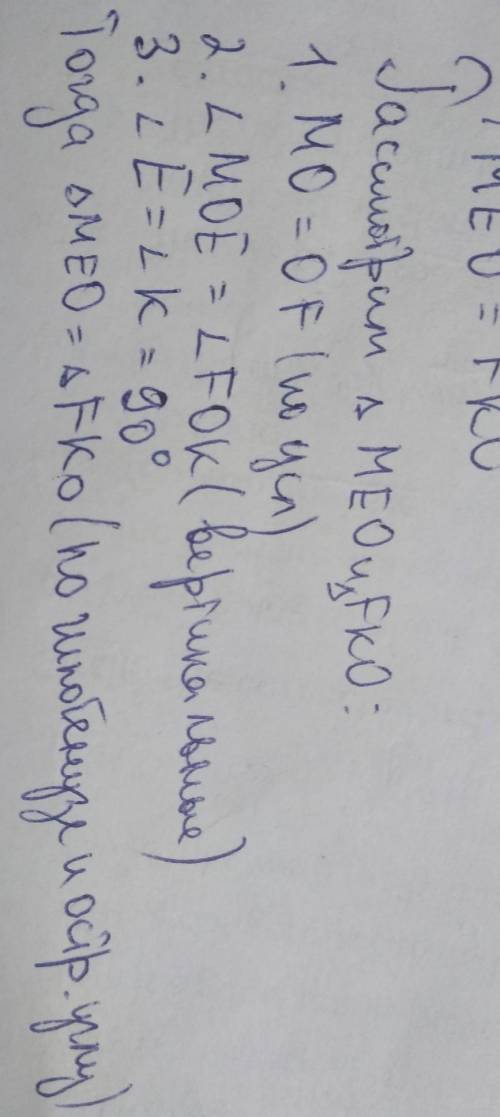 MEO = FKO
Рассмотрим Δ MEO и Δ FKO:
1. MO = OF (по усл)
2. ∠ MOE = ∠ FOK (вертикальные)
3. ∠ E = ∠ K = 90°
Тогда Δ MEO = Δ FKO (по гипотенузе и остр. углу)